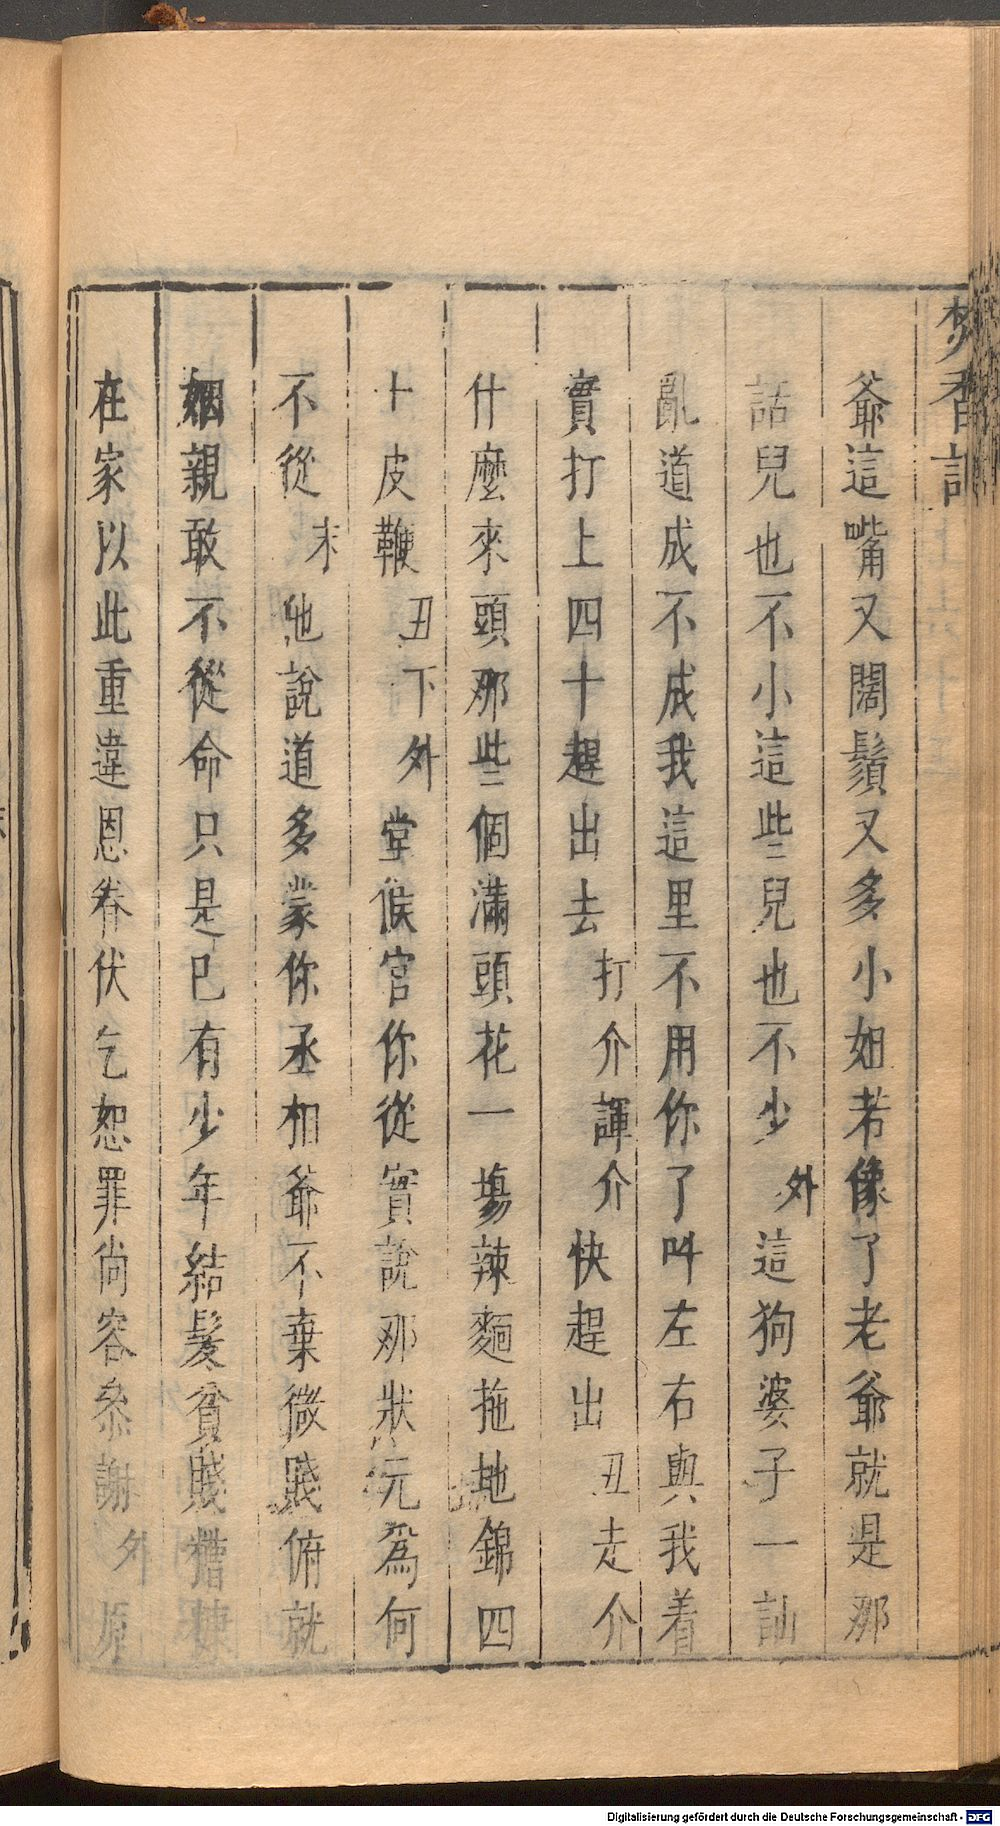 焚香記
爺這嘴又闊鬚又多小如若像了老爺就是那
話兒也不小這些兒也不少外這狗婆子一訕
亂道成不成我這里不用你了叫左右與我着
實打上四十趕出去打介諢介快趕出丑走介
什麼來頭那些個滿頭花一塲辣麵拖地錦四
十皮鞭丑下外堂候官你從實說那狀元爲何
不從末他說道多蒙你丞相爺不棄微賤俯就
姻親敢不從命只是已有少年結髮貧賤糟糠
在家以此重違恩眷伏乞恕罪尚容叅謝外原
Digitalisierung gefördert durch die Deutsche Forschungsgemeinschaft - DFG